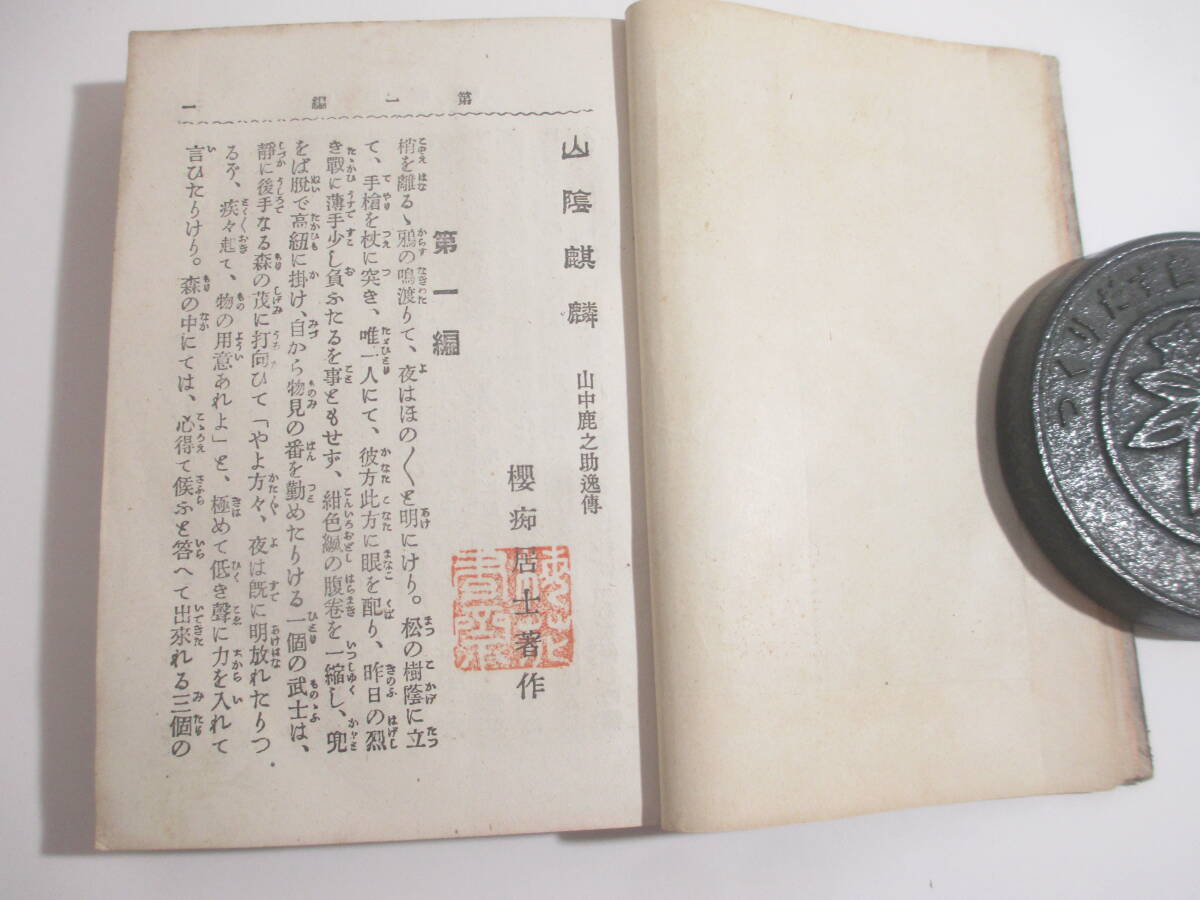 第一編
一
山陰麒麟 山中鹿之助逸傳
櫻痴居士著作
第一編
梢を離るゝ鴉の鳴渡りて、夜はほの〲と明にけり。松の樹陰に立
て、手槍を杖に突き、唯一人にて、彼方此方に眼を配り、昨日の烈
き戰に薄手少し負ふたるを事ともせず、紺色縅の腹卷を一縮し、兜
をば脱で高紐に掛け、自から物見の番を勤めたりける一個の武士は、
靜に後手なる森の茂に打向ひて「やよ方々、夜は既に明放れたりつ
るぞ、疾々起て、物の用意あれよ」と、極めて低き聲に力を入れて
言ひたりけり。森の中にては、心得て候ふと答へて出來れる三個の
つくりだすしじ